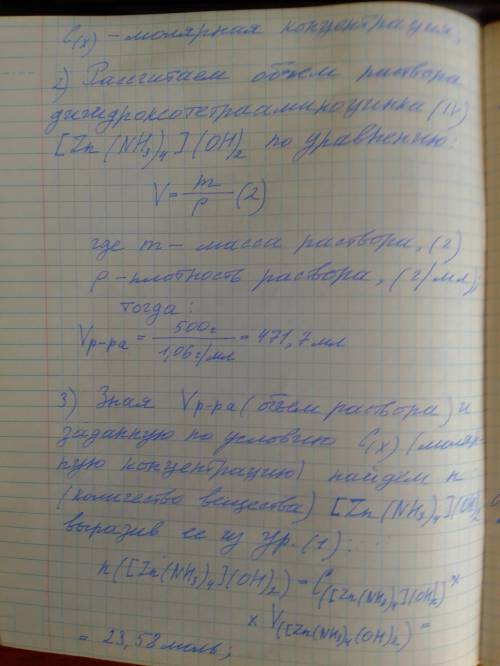 C(x) – молярная концентрация,
2) Рассчитаем объем раствора
дигидроксотетрааминоцинка (IV)
[Zn(NH₃)₄](OH)₂ по уравнению:
V = m/ρ (2)
где m – масса раствора, (г)
ρ – плотность раствора, (г/мл),
тогда:
Vр-ра = 500г / 1,06г/мл = 471,7 мл
3) Зная Vр-ра (объем раствора) и
заданную по условию C(x) (моляр-
ную концентрацию) найдём n
(количество вещества) [Zn(NH₃)₄](OH)₂
выразив ее из ур. (1):
n([Zn(NH₃)₄](OH)₂) = C([Zn(NH₃)₄](OH)₂) ×
× V([Zn(NH₃)₄(OH)₂) =
= 23,58 моль;